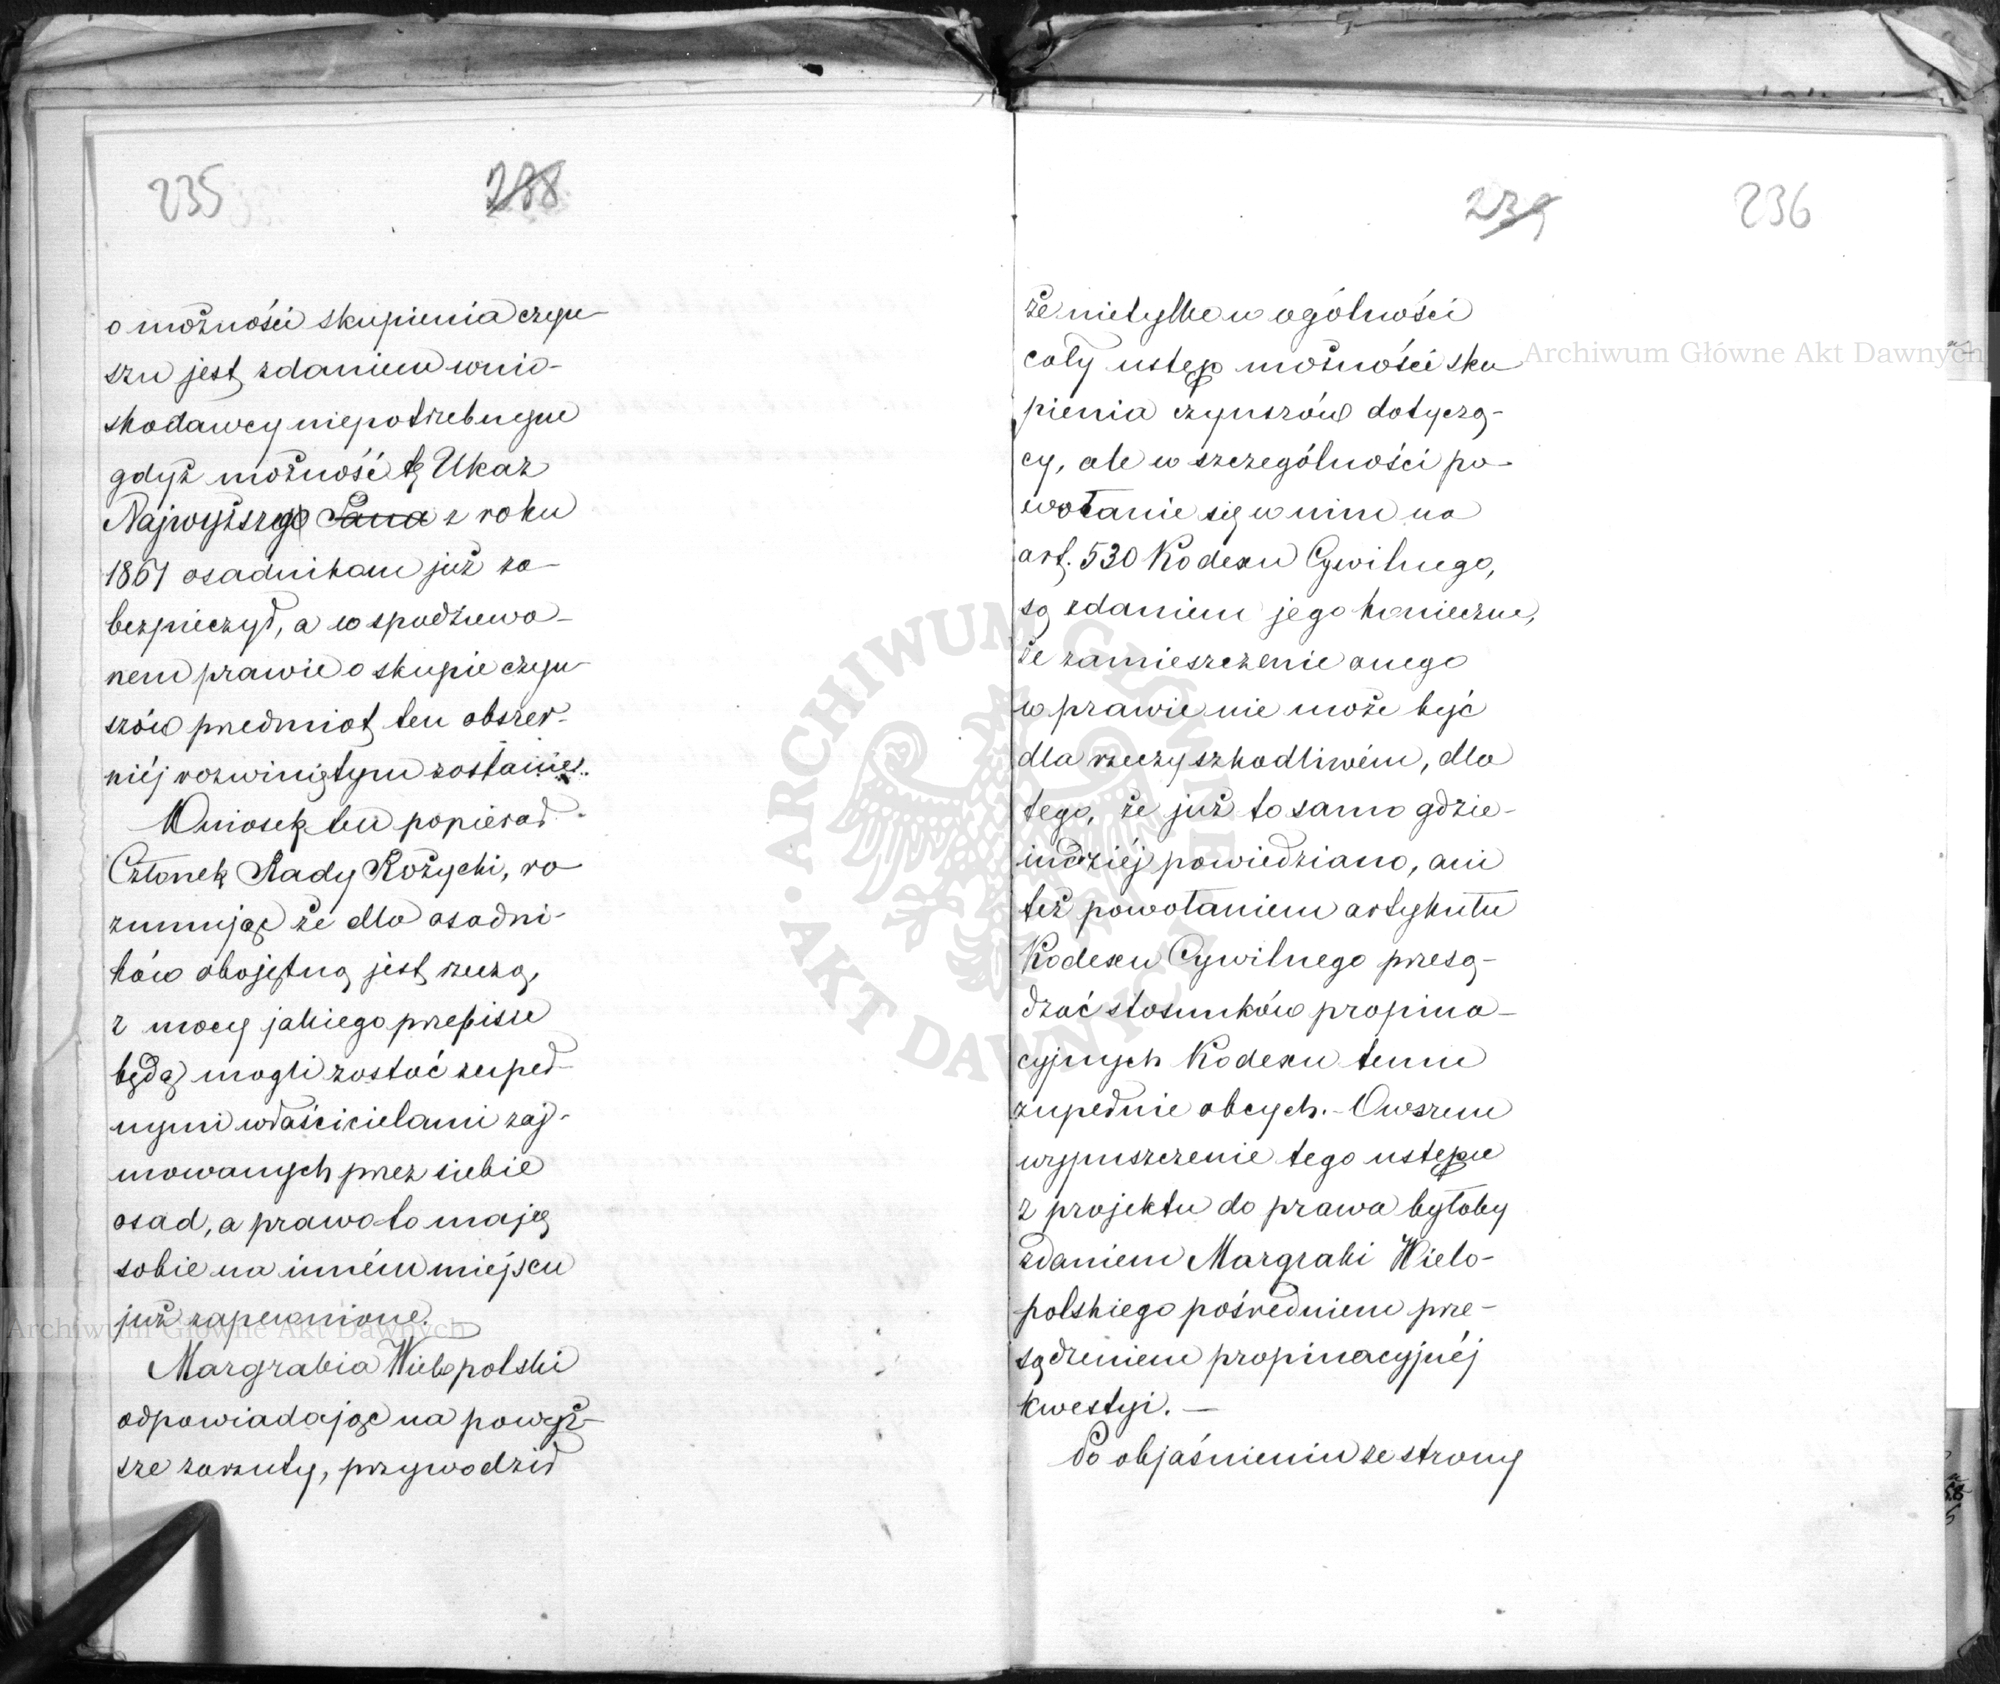 235 238
o możności skupienia czyn-
szu jest zdaniem wnio-
skodawcy niepotrzebnym
gdyż możność tę Ukaz
Najwyższy Pana z roku
1861 osadnikom już za-
bezpieczył, a w spodziewa-
nem prawie o skupie czyn-
szów przedmiot ten obszer-
niéj rozwiniętym zostanie.
Wniosek ten popierał
Członek Rady Różycki, ro
zumując że dla osadni-
ków obojętną jest rzeczą,
z mocy jakiego przepisu
będą mogli zostać zupeł-
nymi właścicielami zaj-
mowanych przez siebie
osad, a prawo to mają
sobie na inném miejscu
już zapewnione.
Margrabia Wielopolski
odpowiadając na powyż-
sze zarzuty, przywodził
239 236
że nietylko w ogólności
cały ustęp możności sku
pienia czynszów dotyczą-
cy, ale w szczególności po-
wołanie się w nim na
art. 530 Kodexu Cywilnego,
są zdaniem jego konieczne,
że zamieszczenie onego
w prawie nie może być
dla rzeczy szkodliwém, dla
tego, że już to samo gdzie-
indziéj powiedziano, ani
też powołaniem artykułu
Kodexu Cywilnego przesą-
dzać stosunków propina-
cyjnych Kodexu temu
zupełnie obcych. - Owszem
wypuszczenie tego ustępu
z projektu do prawa byłoby
zdaniem Margrabi Wielo-
polskiego pośredniem prze-
sądzeniem propinacyjnéj
kwestyi. —
Po objaśnieniu ze strony
Archiwum Główne Akt Dawnych
Archiwum Główne Akt Dawnych
ARCHIWUM GŁÓWNE AKT DAWNYCH